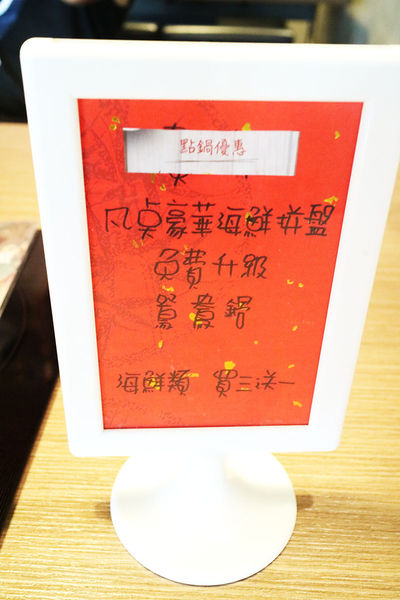 點鍋優惠
凡點豪華海鮮拼盤
免費升級
鴛鴦鍋
海鮮類 買三送一